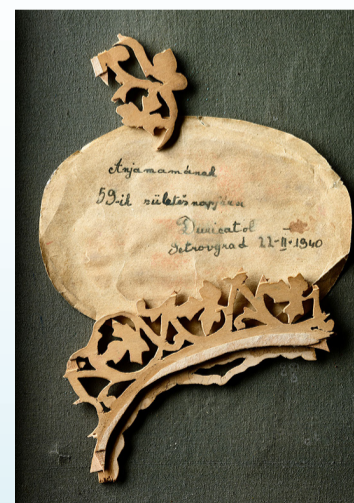 Anjamamának
59-ik születésnapjára
Dusicatol
Petrovgrad 22-II-1940